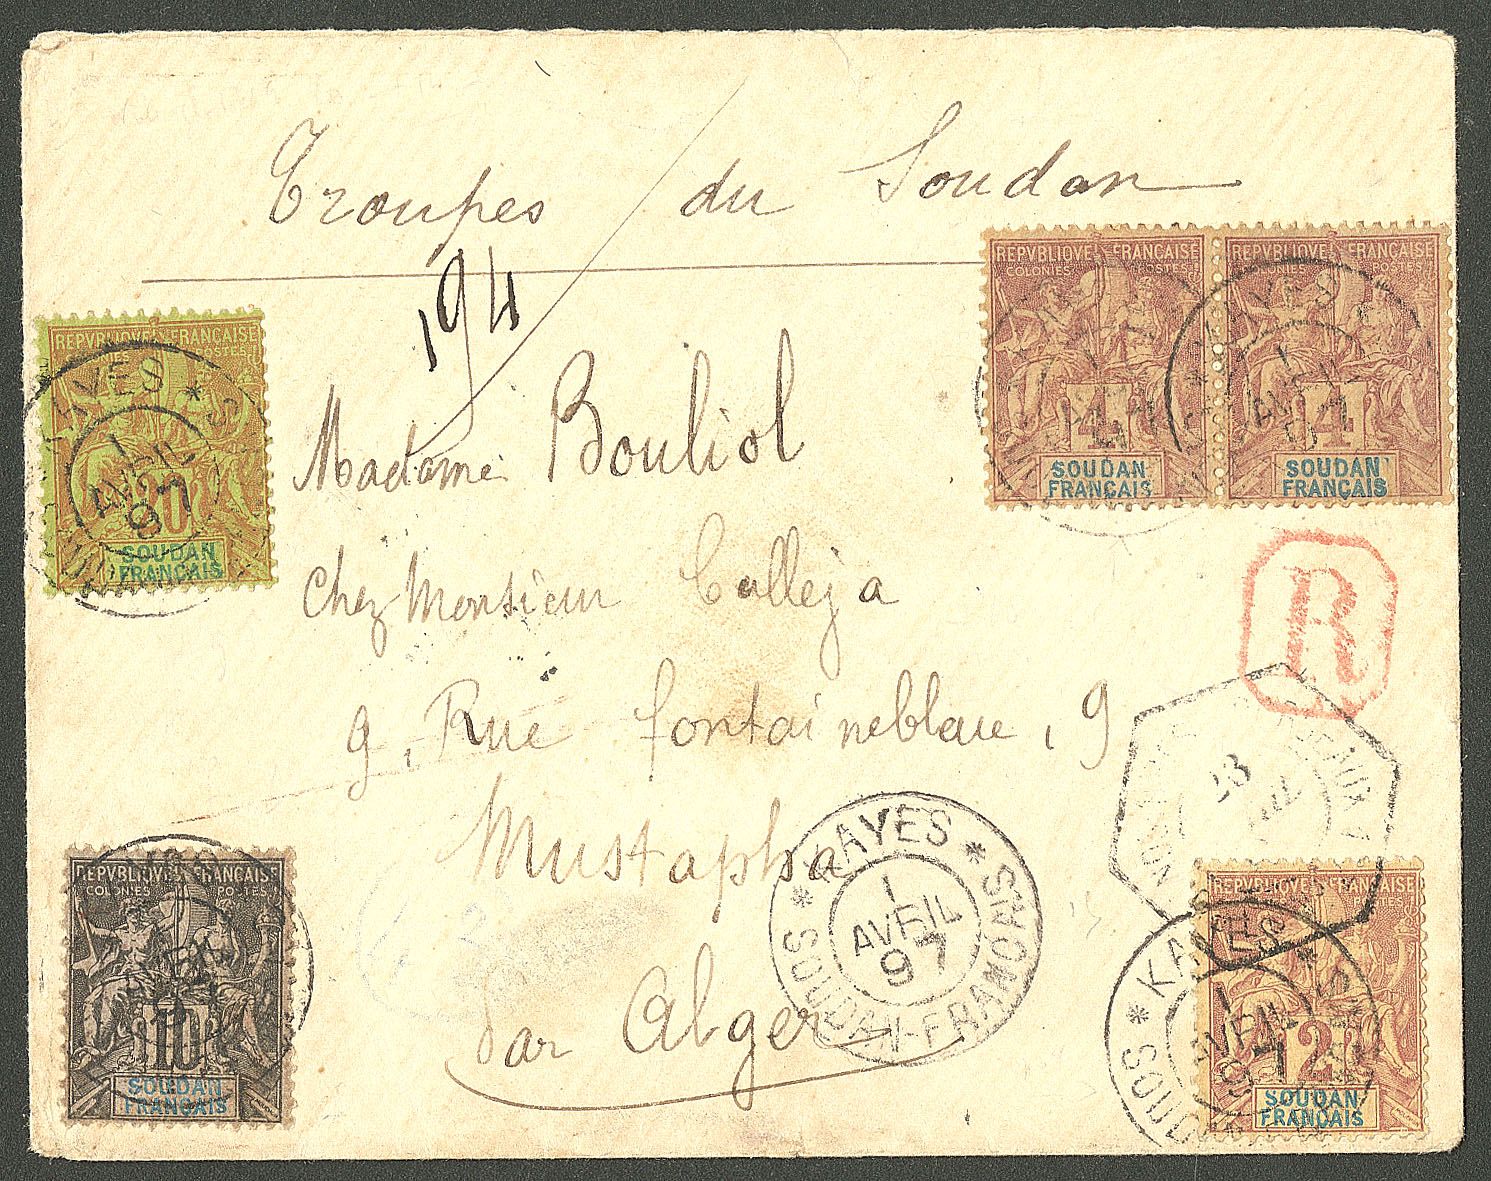 Troupes du Soudan
194
REPVBLIQVE FRANÇAISE
COLONIES POSTES
4
SOUDAN
FRANÇAIS
REPVBLIQVE FRANÇAISE
COLONIES POSTES
4
SOUDAN
FRANÇAIS
KAYES
1
REPVBLIQVE FRANÇAISE
COLONIES POSTES
20
SOUDAN
FRANÇAIS
KAYES * S
1
AVRIL
97
Madame Bouliol
Chez Monsieur Calleja
9, Rue Fontaineblaue, 9
Mustapha
par Alger
R
23
* KAYES *
1
AVRIL
97
SOUDAN-FRANCAIS
REPVBLIQVE FRANÇAISE
COLONIES POSTES
10
SOUDAN
FRANÇAIS
REPVBLIQVE FRANÇAISE
2
SOUDAN
FRANÇAIS
* KAYES *
1
AVRIL
97
SOUDAN